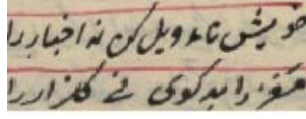 خویش تاءویل کن نه اخبار را
مغز را بد گوی نی گلزار را